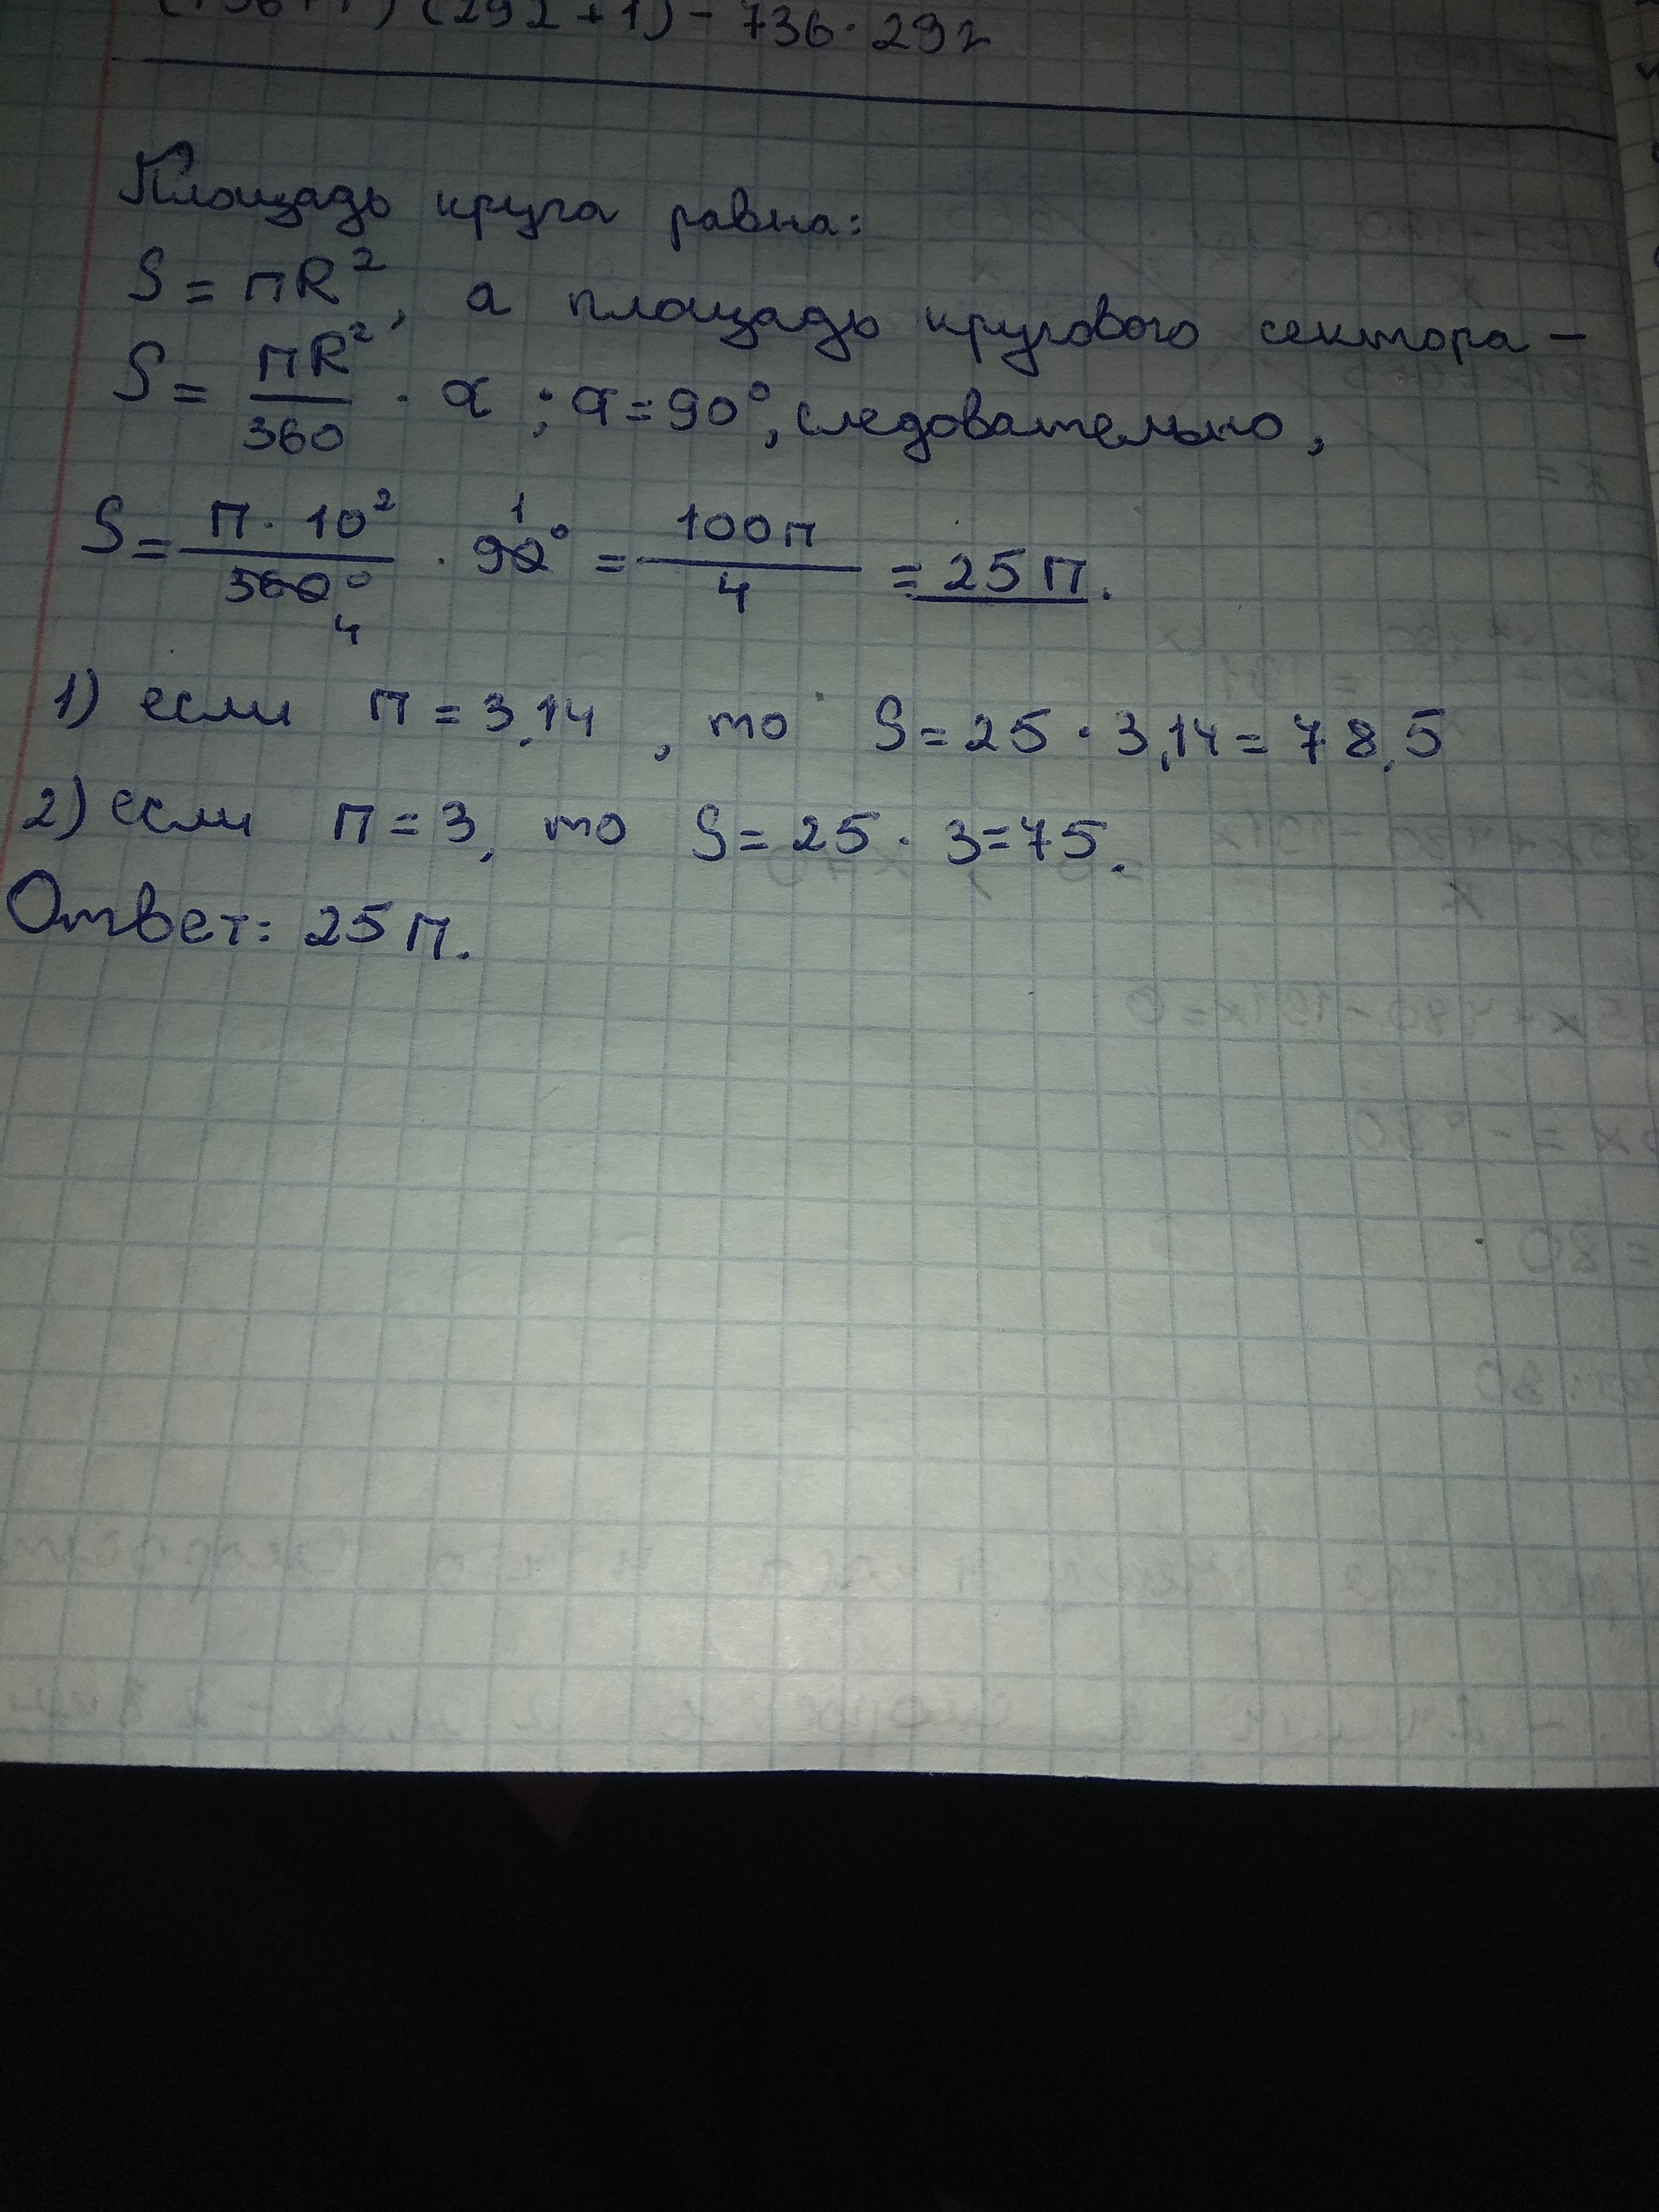 (736+1) (292+1) - 736·292
Площадь круга равна:
S = пR², а площадь кругового сектора –
S = пR²/360 · α ; α = 90°, следовательно,
S = П·10²/360° 4 · 90° 1 = 100п/4 = 25П.
1) если П = 3,14, то S = 25·3,14 = 78,5
2) если П = 3, то S = 25·3=75.
Ответ: 25п.